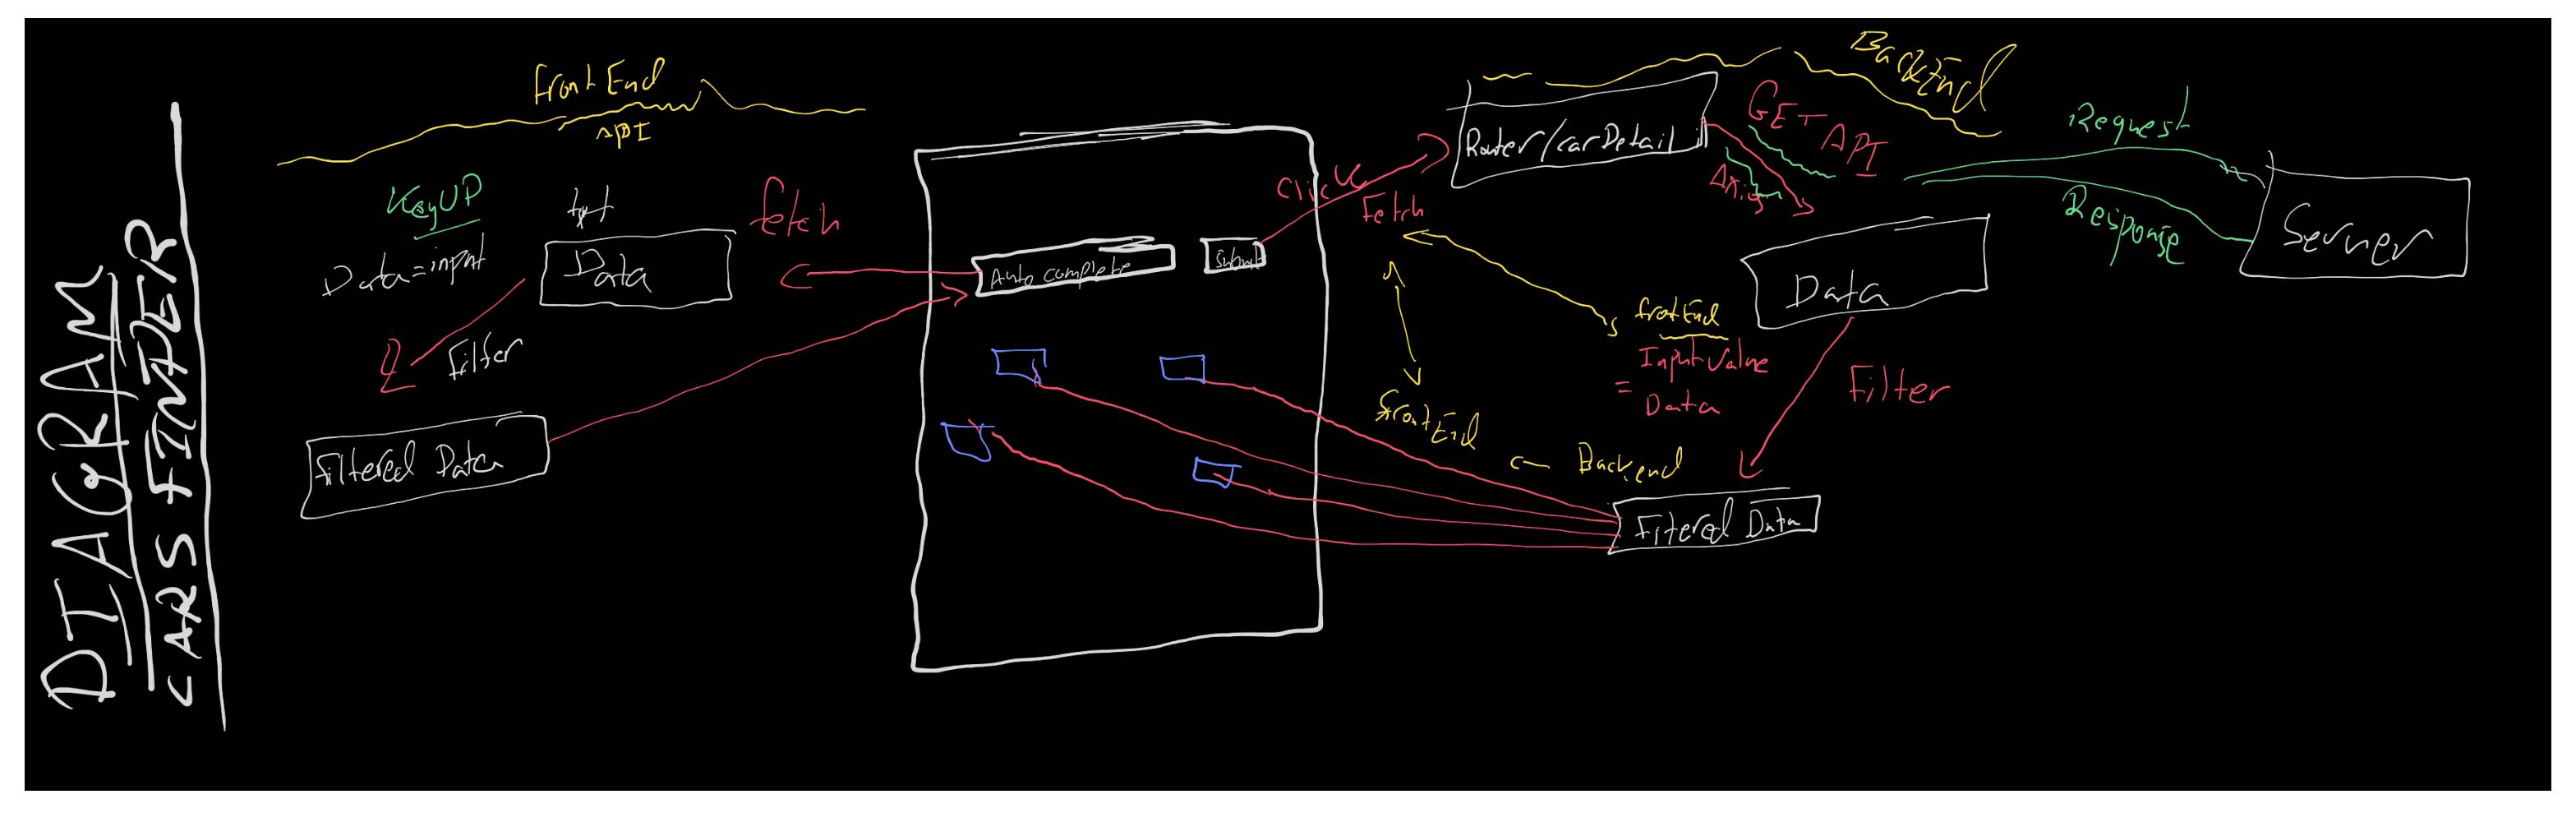 DIAGRAM
CARS FINDER
frontEnd
API
KeyUP
txt
Data=input
Data
fetch
Filter
Filtered Data
Auto complete
Submit
Click
Fetch
Router/carDetail
BackEnd
GET API
Axios
Request
Response
Server
Data
frontEnd
InputValue
= Data
Filter
frontEnd
Backend
Fitered Data